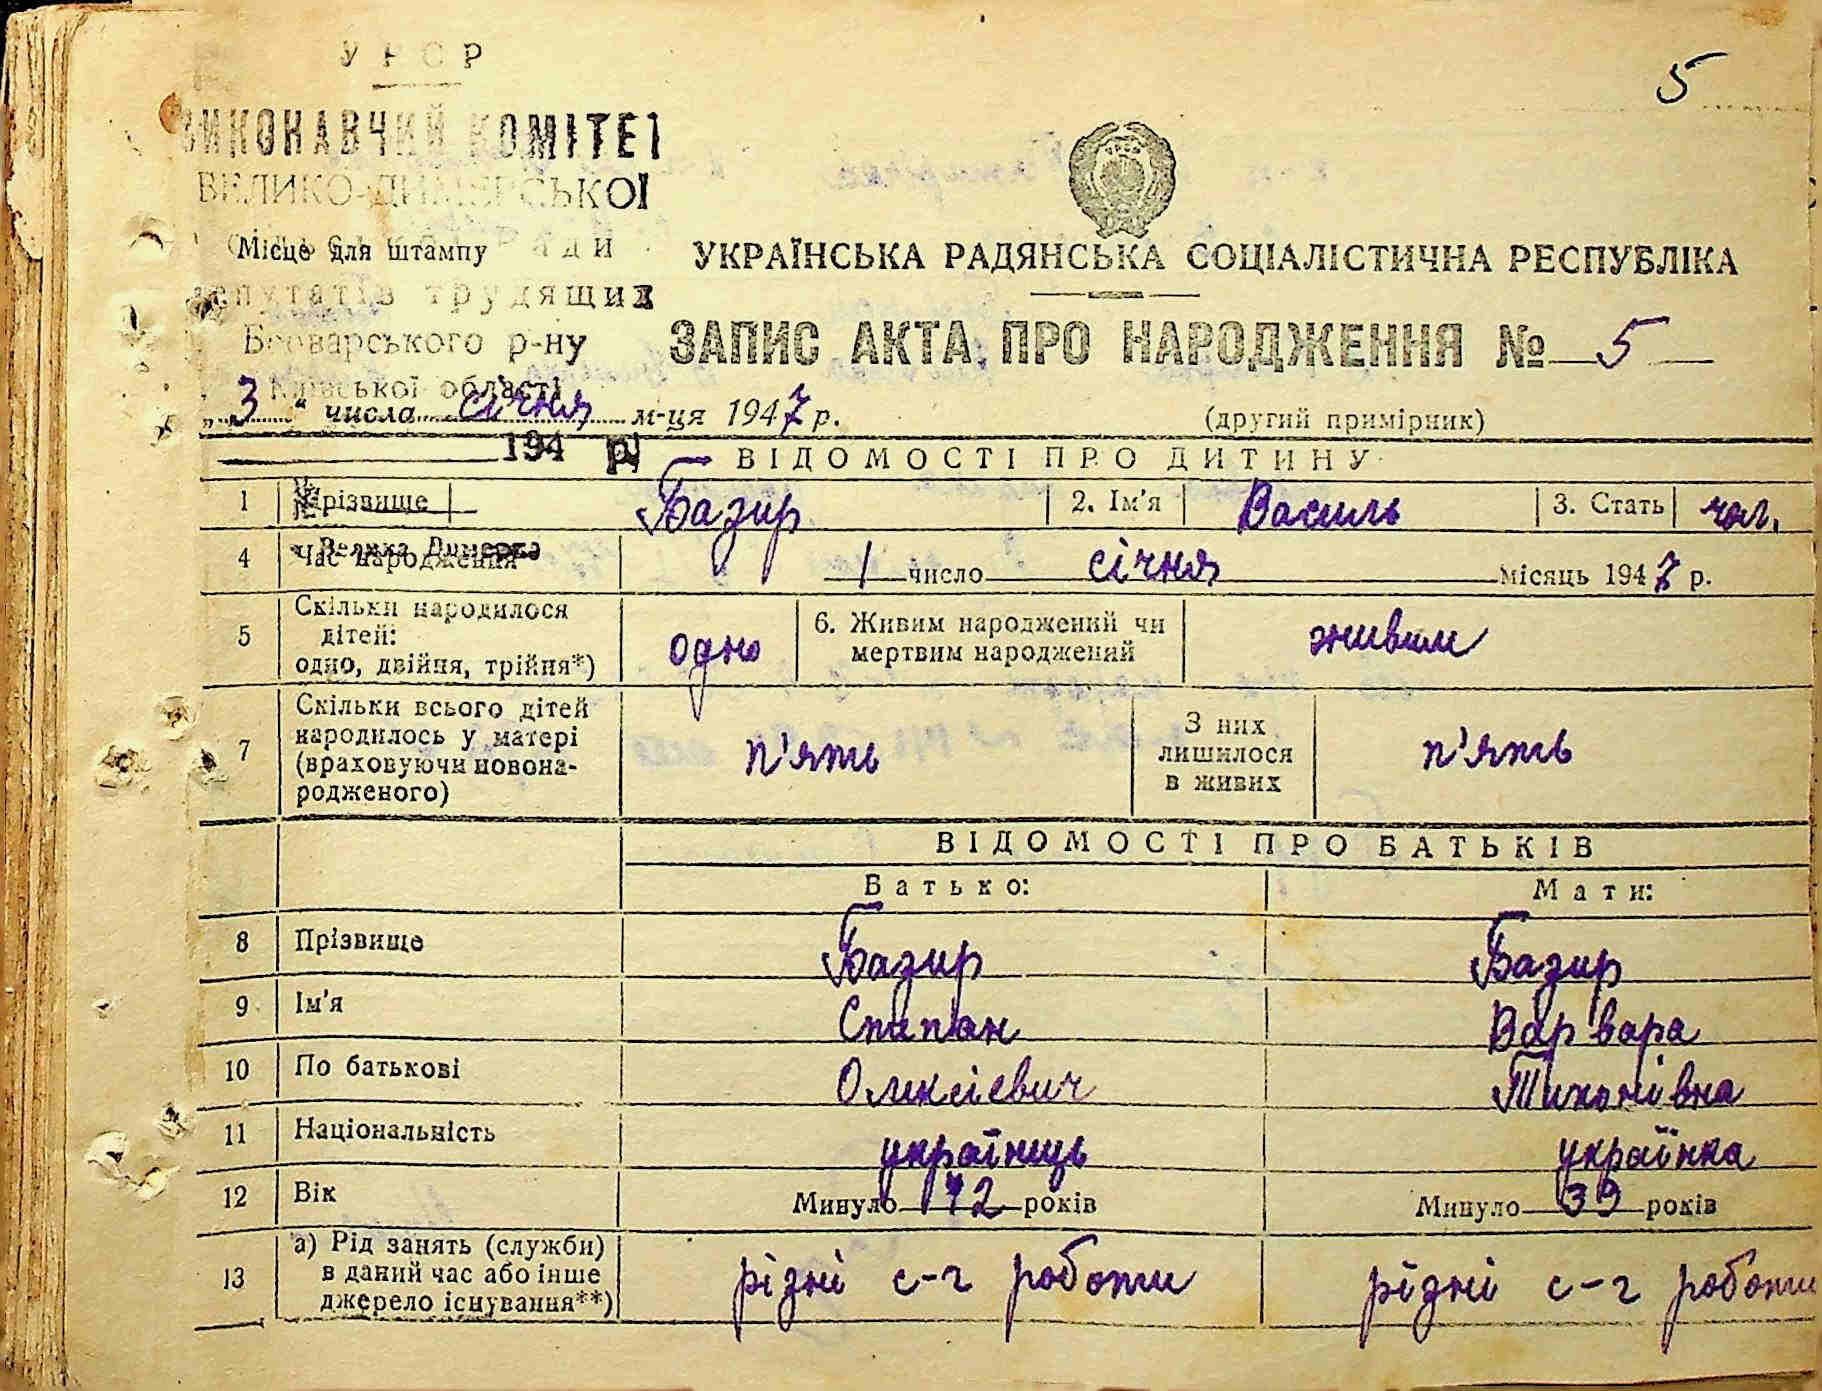 5
УРСР
ВИКОНАВЧИЙ КОМІТЕТ
ВЕЛИКО-ДИМЕРСЬКОЇ
Місце для штампу
ради
депутатів трудящих
Броварського р-ну
Київської області
194 р.
УКРАЇНСЬКА РАДЯНСЬКА СОЦІАЛІСТИЧНА РЕСПУБЛІКА
ЗАПИС АКТА ПРО НАРОДЖЕННЯ № 5
„ 3 “ числа січня м-ця 1947 р.
(другий примірник)
ВІДОМОСТІ ПРО ДИТИНУ
1 Прізвище Базир 2. Ім'я Василь 3. Стать чол.
с. Велика Димерка
4 Час народження 1 число січня місяць 1947 р.
5 Скільки народилося дітей: одно, двійня, трійня*) одно 6. Живим народжений чи мертвим народжений живим
7 Скільки всього дітей народилось у матері (враховуючи новона-родженого) п'ять З них лишилося в живих п'ять
ВІДОМОСТІ ПРО БАТЬКІВ
Батько: Мати:
8 Прізвище Базир Базир
9 Ім'я Степан Варвара
10 По батькові Олексієвич Тихонівна
11 Національність українець українка
12 Вік Минуло 42 років Минуло 39 років
13 а) Рід занять (служби) в даний час або інше джерело існування**) різні с-г роботи різні с-г роботи